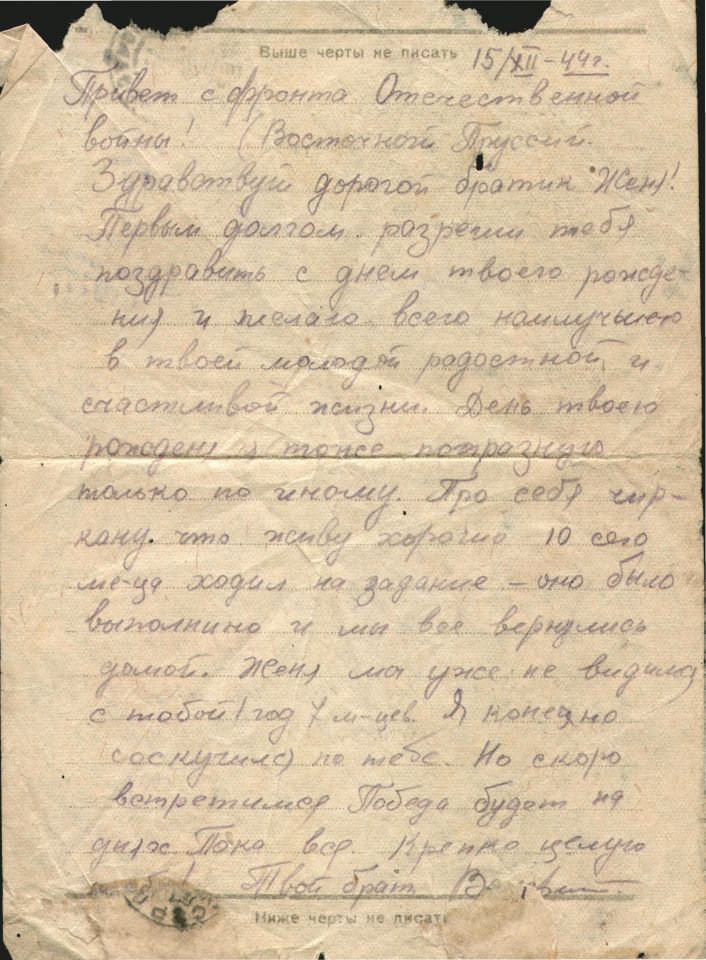 Выше черты не писать 15/XII-44г.
Привет с фронта Отечественной
войны! (Восточной Пруссий.
Здравствуй дорогой братик Женя!
Первым долгом разреши тебя
поздравить с днем твоего рожде-
ния и желаю всего наилучшего
в твоей молодой радостной и
счастливой жизни. День твоего
рождения я тоже попразную
только по иному. Про себя чир-
кану что живу хорошо 10 сего
ме-ца ходил на задание - оно было
выполнино и мы все вернулись
домой. Женя мы уже не видились
с тобой 1 год 7 м-цев. Я конечно
соскучился по тебе. Но скоро
встретимся Победа будет на
днях Пока все. Крепко целую
Твой брат
Ниже черты не писать